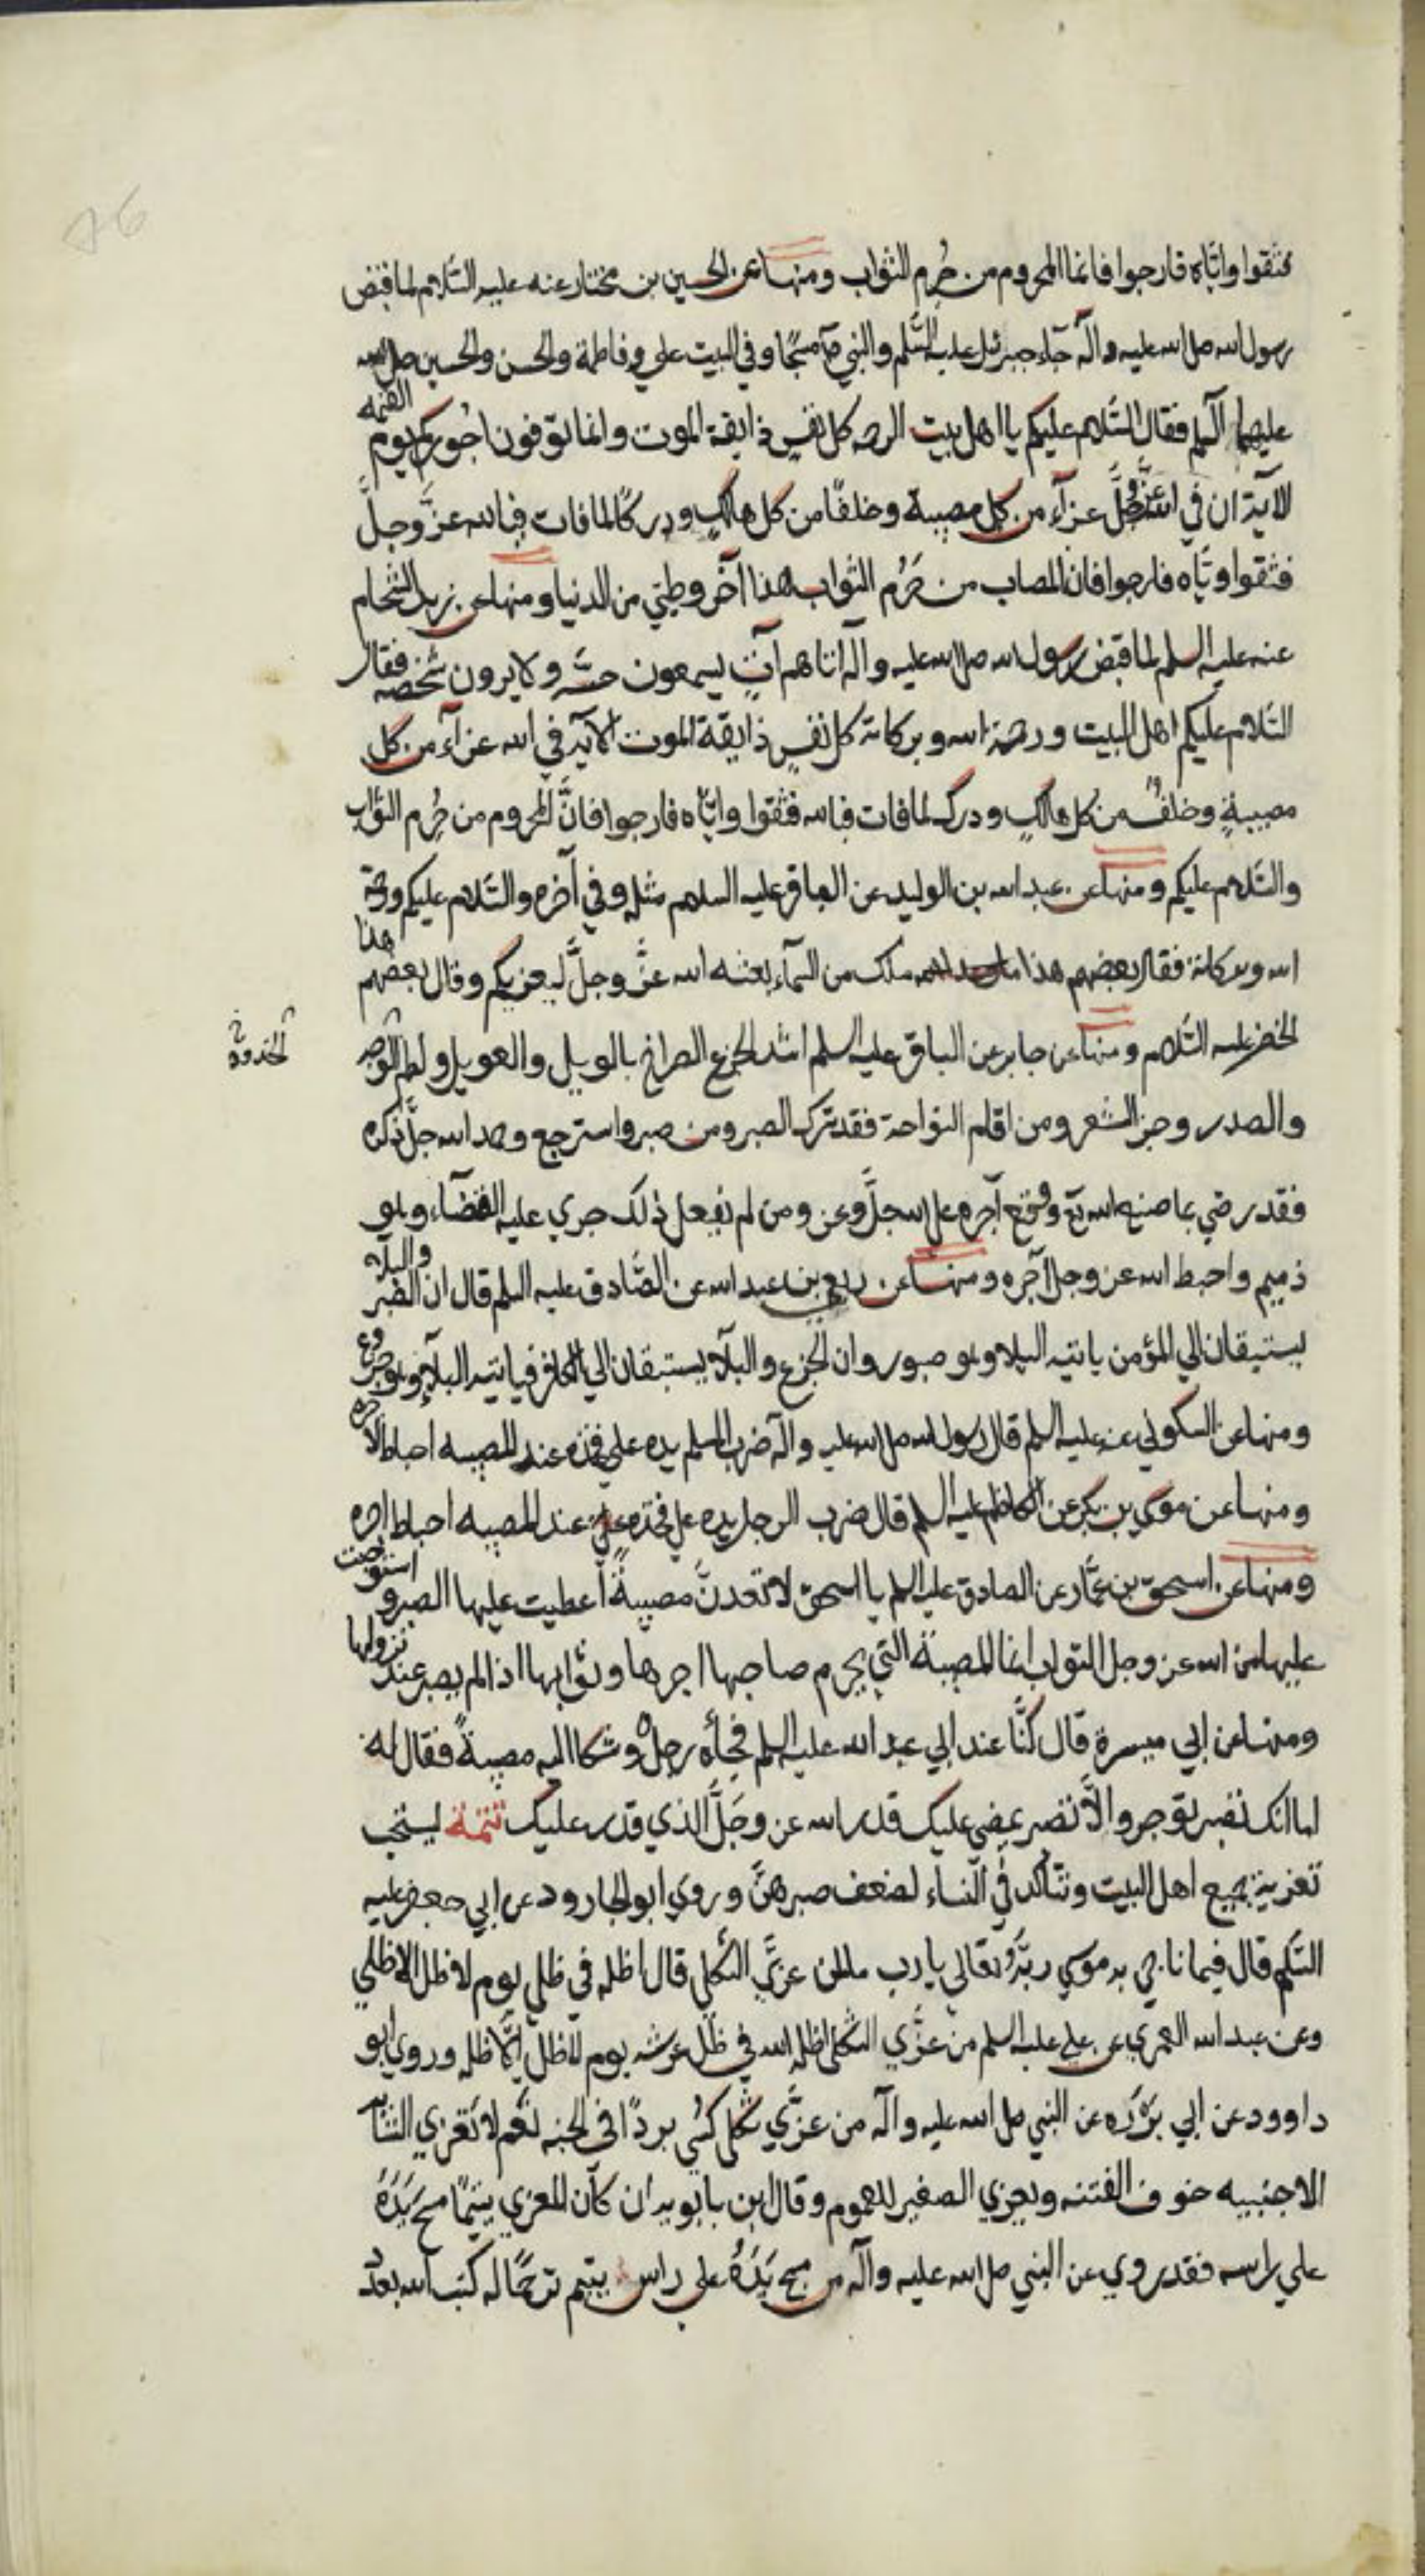 فثقوا واياه فارجوا فانما المحروم من حُرِم الثواب ومنها عن الحسين بن مختار عنه عليه السّلام لما قبض
رسول الله صلى الله عليه وآله جآء جبرئيل عليه السّلم والنبي مسجًا وفي البيت علي وفاطمة والحسن والحسين صلى الله
عليهم فقال السّلام عليكم يا اهل بيت الرحمه كل نفسٍ ذايقة الموت وانما توفون اجُوركم يوم القيمه
الآية ان في الله عزَّ وجلَّ عزآء من كل مصيبة وخلفًا من كل هالكٍ ودركًا لما فات فبالله عزَّ وجلَّ
فثقوا وايّاه فارجوا فان المصاب من حُرم الثواب هذا آخر وطيّي من الدنيا ومنها عن زيد الشحام
عنه عليه السلم لما قبض رسول الله صلى الله عليه وآله اتاهم آتٍ يسمعون حسَّه ولا يرون شخصه فقال
السّلام عليكم اهل البيت ورحمة الله وبركاته كل نفسٍ ذايقة الموت الآيه في الله عزآء من كل
مصيبةٍ وخلفٌ من كل هالكٍ ودرك لما فات فبالله فثقوا وايّاه فارجوا فانَّ المحروم من حُرِم الثواب
والسّلام عليكم ومنها عن عبد الله بن الوليد عن الباقر عليه السلام مثله وفي آخره والسّلام عليكم ورحمة
الله وبركاته فقال بعضهم هذا ملك من السمآء بعثه الله عزَّ وجلَّ ليعزيكم وقال بعضهم هذا
الخضر عليه السّلام ومنها عن جابر عن الباقر عليه السلم اشد الجزع الصراخ بالويل والعويل ولطم الوجه
الخدود خ
والصدر وجز الشعر ومن اقام النواحة فقد ترك الصبر ومن صبر واسترجع وحمد الله جلَّ ذكره
فقد رضي بما صنع الله تع ووقع آجره على الله جلَّ وعز ومن لم يفعل ذلك جري عليه القضآء وهو
ذميم واحبط الله عز وجل آجره ومنها عن ربعي بن عبد الله عن الصّادق عليه السلم قال ان الصبر والبلآء
يستبقان الي المؤمن ياتيه البلا وهو صبور وان الجزع والبلآء يستبقان الي الكافر فياتيه البلآء وهو جزوع
ومنها عن السكوني عنه عليه السلم قال رسول الله صلى الله عليه وآله ضرب المسلم يده علي فخذه عند المصيبه احباط لاجره
ومنها عن موسي بن بكر عن الكاظم عليه السلم قال ضرب الرجل يده علي فخذه عند المصيبه احباط اجره
ومنها عن اسحق بن عمَّار عن الصادق عليه السلم يا اسحق لا تعدنَّ مصيبةً اعطيت عليها الصبر واستوجبت
عليها من الله عز وجل الثواب انما المصيبة التي يحرم صاحبها اجرها وثوابها اذا لم يصبر عند نزولها
ومنها عن ابي ميسرة قال كنَّا عند ابي عبد الله عليه السلم فجاءه رجلٌ وشكا اليه مصيبةً فقال له
اما انك تصبر توجر والّا تصبر يمضي عليك قدر الله عز وجَلَّ الذي قدر عليك تتمة يستحب
تعزية جميع اهل البيت وتتأكد في النساء لضعف صبرهنَّ وروي ابو الجارود عن ابي جعفر عليه
السّلم قال فيما ناجي به موسي ربَّه تعالي يا رب ما لمن عزَّي الثكلي قال اظله في ظلي يوم لا ظل الا ظلي
وعن عبد الله العمري عن علي عليه السلم من عزَّي الثكلى اظله الله في ظل عرشه يوم لا ظل الّا ظله وروي ابو
داوود عن ابي بَرْزَه عن النبي صلى الله عليه وآله من عزَّي ثكلي كُسي بردًا في الجنه نعم لا تعزي الشابه
الاجنبيه خوف الفتنه ويعزي الصغير للعموم وقال ابن بابويه ان كان المعزي يتيمًا مسح يَدَهُ
علي راسه فقد روي عن النبي صلى الله عليه وآله من مسح يَدَهُ على راس يتيم ترحمًا له كتب الله بعدد